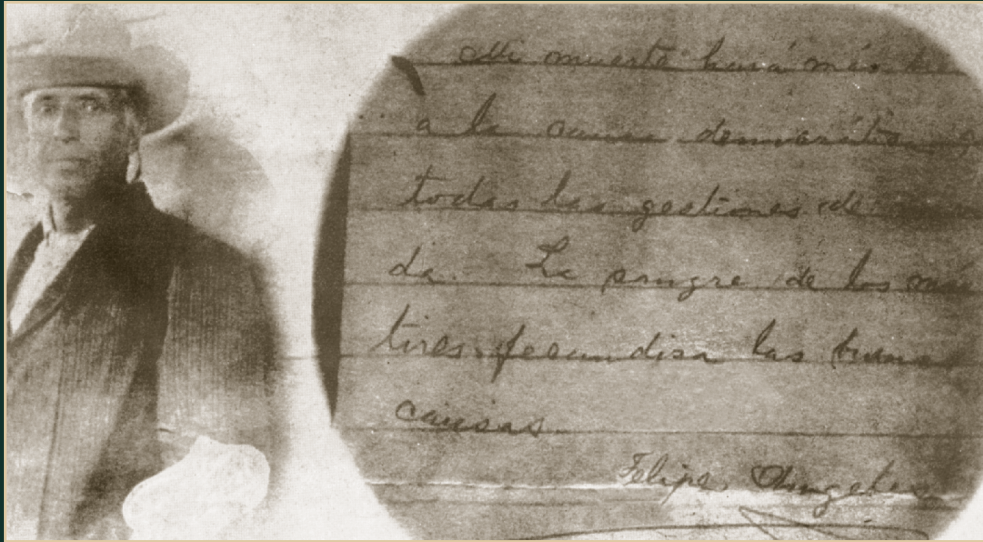 Mi muerte hará más
a la causa democrática
todas las gestiones de
da. La sangre de los már
tires fecundisa las buenas
causas.
Felipe Angeles